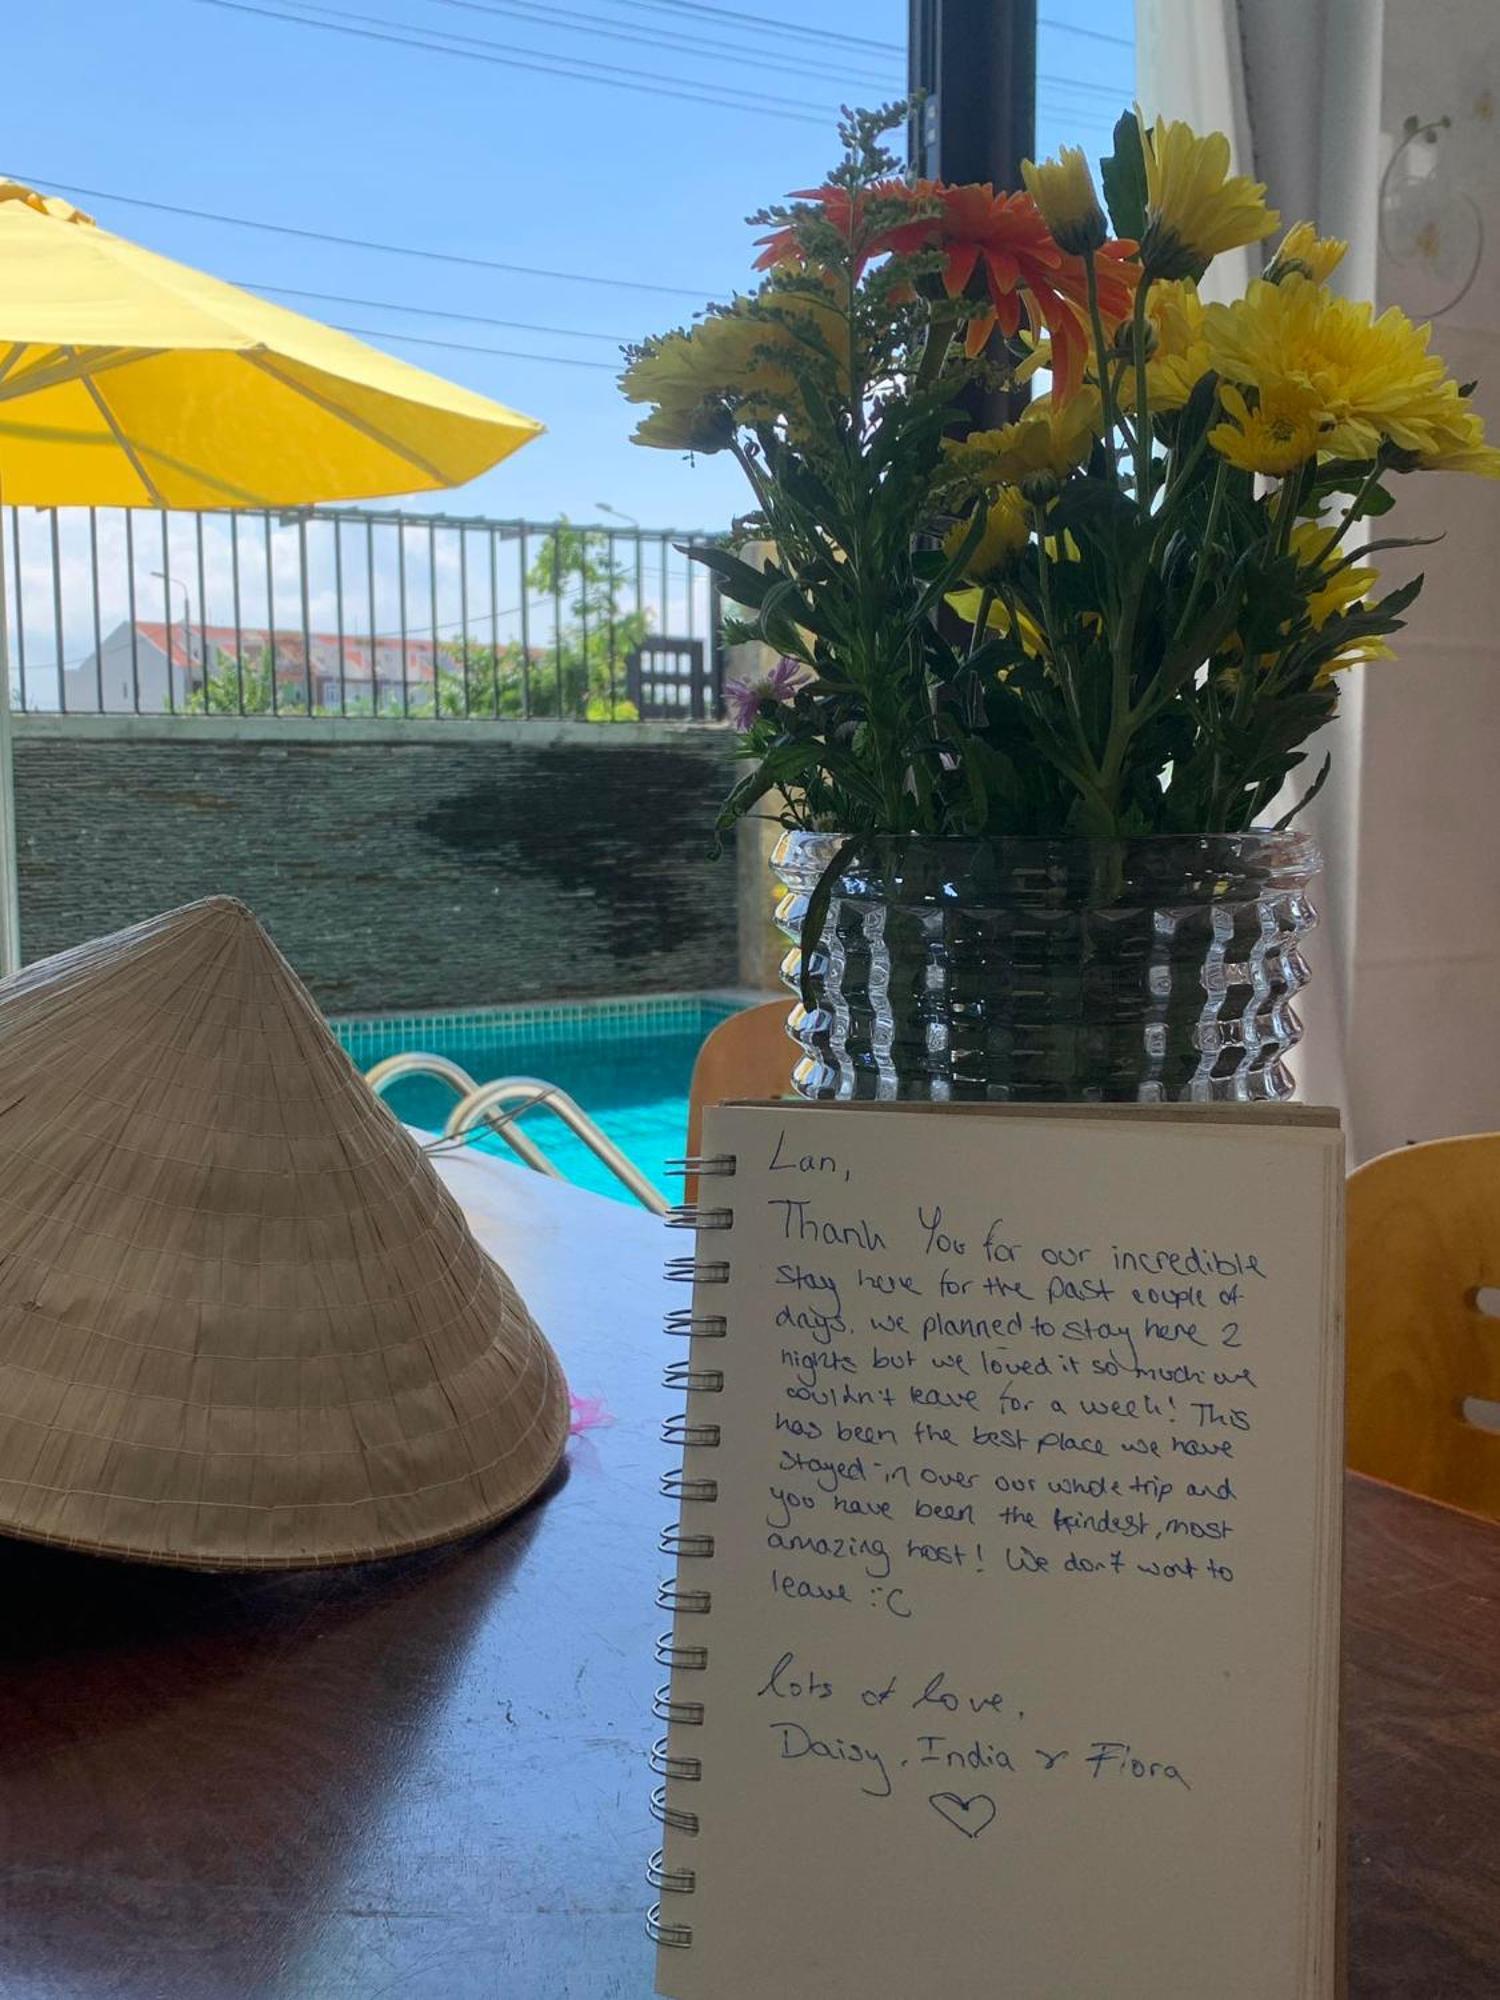 Lan,
Thank You for our incredible
stay here for the past couple of
days. we planned to stay here 2
nights but we loved it so much we
couldn't leave for a week! This
has been the best place we have
stayed in over our whole trip and
you have been the kindest, most
amazing host! We don't want to
leave :'C
lots of love,
Daisy, India & Fiora